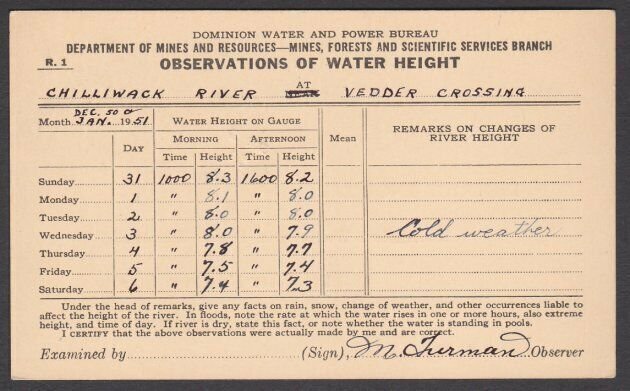 DOMINION WATER AND POWER BUREAU
DEPARTMENT OF MINES AND RESOURCES—MINES, FORESTS AND SCIENTIFIC SERVICES BRANCH
R. 1 OBSERVATIONS OF WATER HEIGHT
CHILLIWACK RIVER AT NEAR VEDDER CROSSING
DEC. 50 &
Month JAN. 1951 WATER HEIGHT ON GAUGE Mean REMARKS ON CHANGES OF RIVER HEIGHT
DAY MORNING AFTERNOON
Time Height Time Height
Sunday 31 1000 8.3 1600 8.2
Monday 1 " 8.1 " 8.0
Tuesday 2 " 8.0 " 8.0
Wednesday 3 " 8.0 " 7.9 Cold weather
Thursday 4 " 7.8 " 7.7
Friday 5 " 7.5 " 7.4
Saturday 6 " 7.4 " 7.3
Under the head of remarks, give any facts on rain, snow, change of weather, and other occurrences liable to
affect the height of the river. In floods, note the rate at which the water rises in one or more hours, also extreme
height, and time of day. If river is dry, state this fact, or note whether the water is standing in pools.
I CERTIFY that the above observations were actually made by me and are correct.
Examined by (Sign), M. Turman Observer